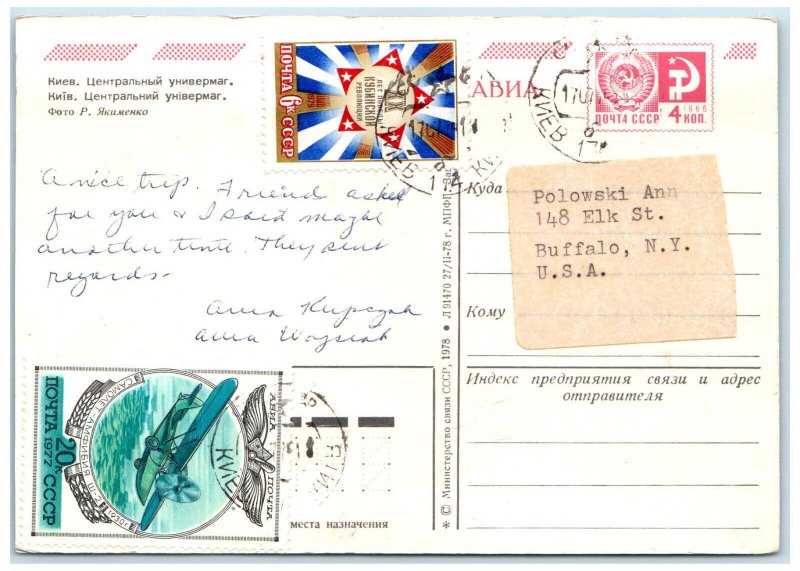 Киев. Центральный универмаг.
Київ. Центральний універмаг.
Фото Р. Якименко
ПОЧТА 6К СССР
XX
ЛЕТ ПОБЕДЫ
КУБИНСКОЙ
РЕВОЛЮЦИИ
1979
АВИА
ПОЧТА СССР
1966
4 КОП.
КИЕВ
КИЕВ
A nice trip. Friends asked
for you & I said maybe
another time. They sent
regards-
Anna
Anna
Куда
Polowski Ann
148 Elk St.
Buffalo, N.Y.
U.S.A.
Кому
Индекс предприятия связи и адрес
отправителя
* © Министерство связи СССР, 1978 • Л 91470 27/II-78 г. МПФГ
САМОЛЕТ-АМФИБИЯ
АВИА
ПОЧТА
20К
ПОЧТА 1977 СССР
КИЕВ
места назначения